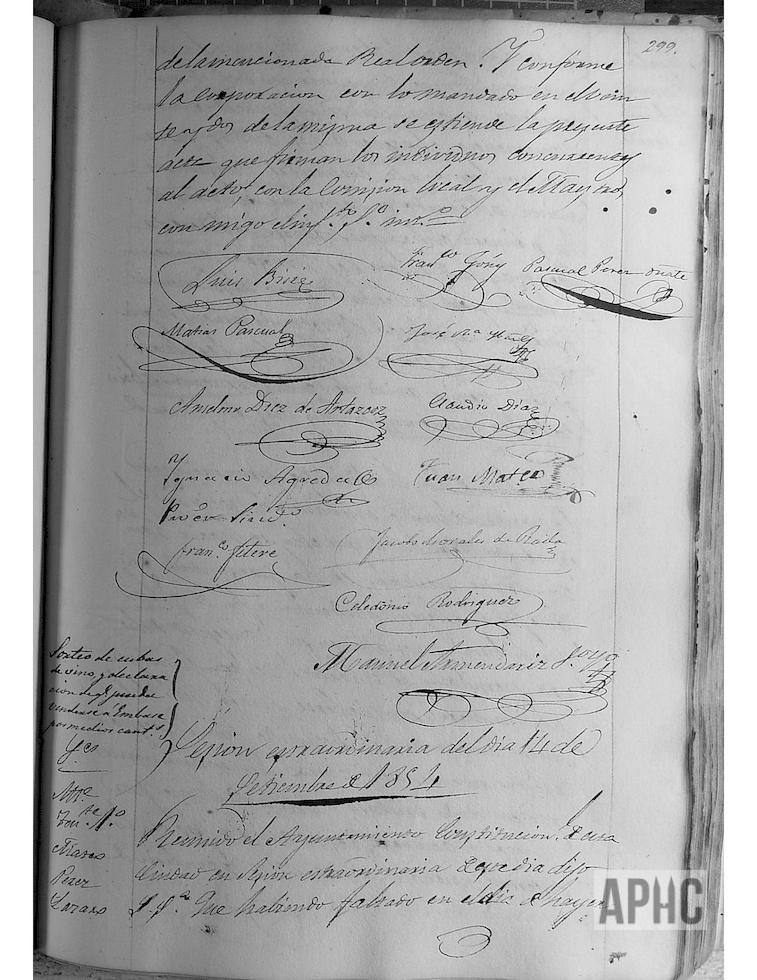 299.
de la mencionada Real orden. Y conforme
la Corporacion con lo mandado en el vein
te y dos de la misma se estiende la presente
acta que firman los individuos concurrentes
al acto, con la Comision local y el Mayord.º
con migo el inf.to S.º
Luis
Fran.co Goñy
Pascual Perez Oñate
Matias Pascual
José M.a
Anselmo Diez de Artazcoz
Claudio Diaz
Ygnacio Agreda
Juan Mateo
Pro.cor Sind.º
Fran.co Jitere
Jacobo Morales de Rada
Celedonio Rodriguez
Manuel Armendariz S.º
Sorteo de cubas
de vino, y declara
cion de q.e puede
venderse a Embase
por medios cant.s
S.es
Sesion estraordinaria del dia 14 de
Setiembre de 1854
Alc.e
Ten.te A.º
Mateo
Perez
Lazaro
Reunido el Ayuntamiento Constitucion.l de esta
Ciudad en sesion estraordinaria de este dia dijo
S.S.a Que habiendo faltado en el dia de hayer
APHC